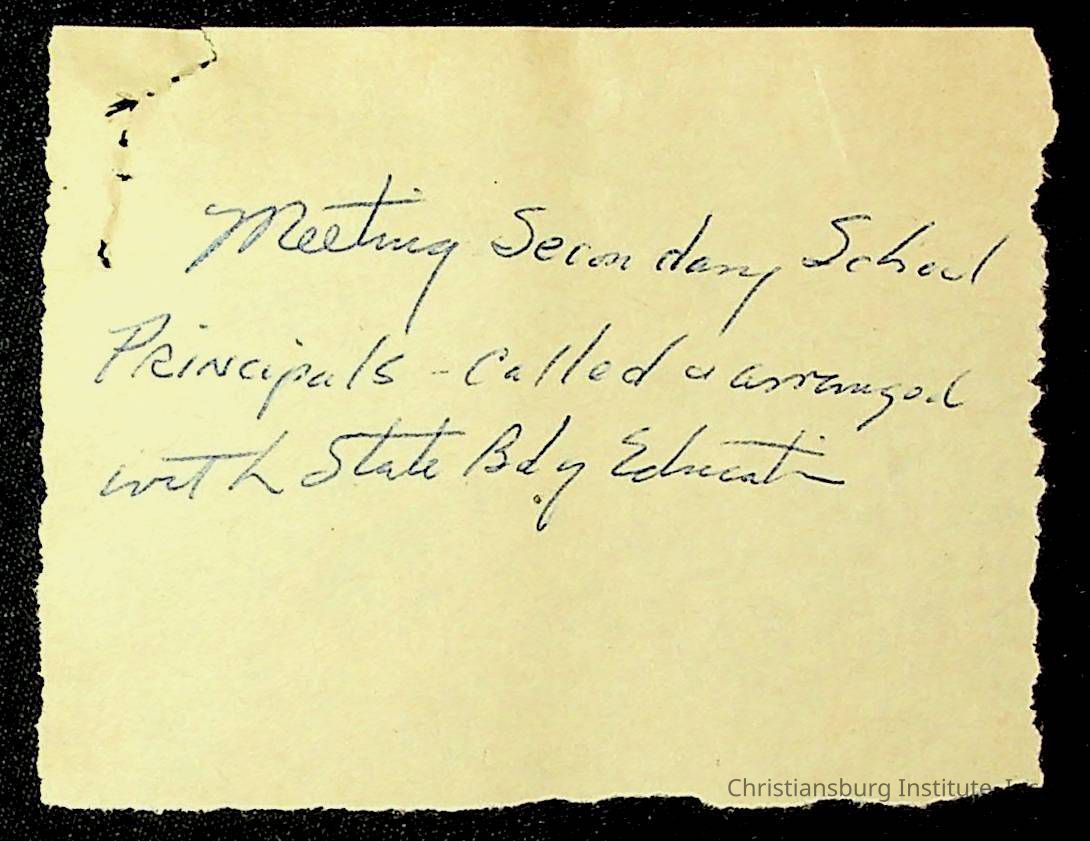 Meeting Secondary School
Principals - called & arranged
with State Bd of Education
Christiansburg Institute, Inc